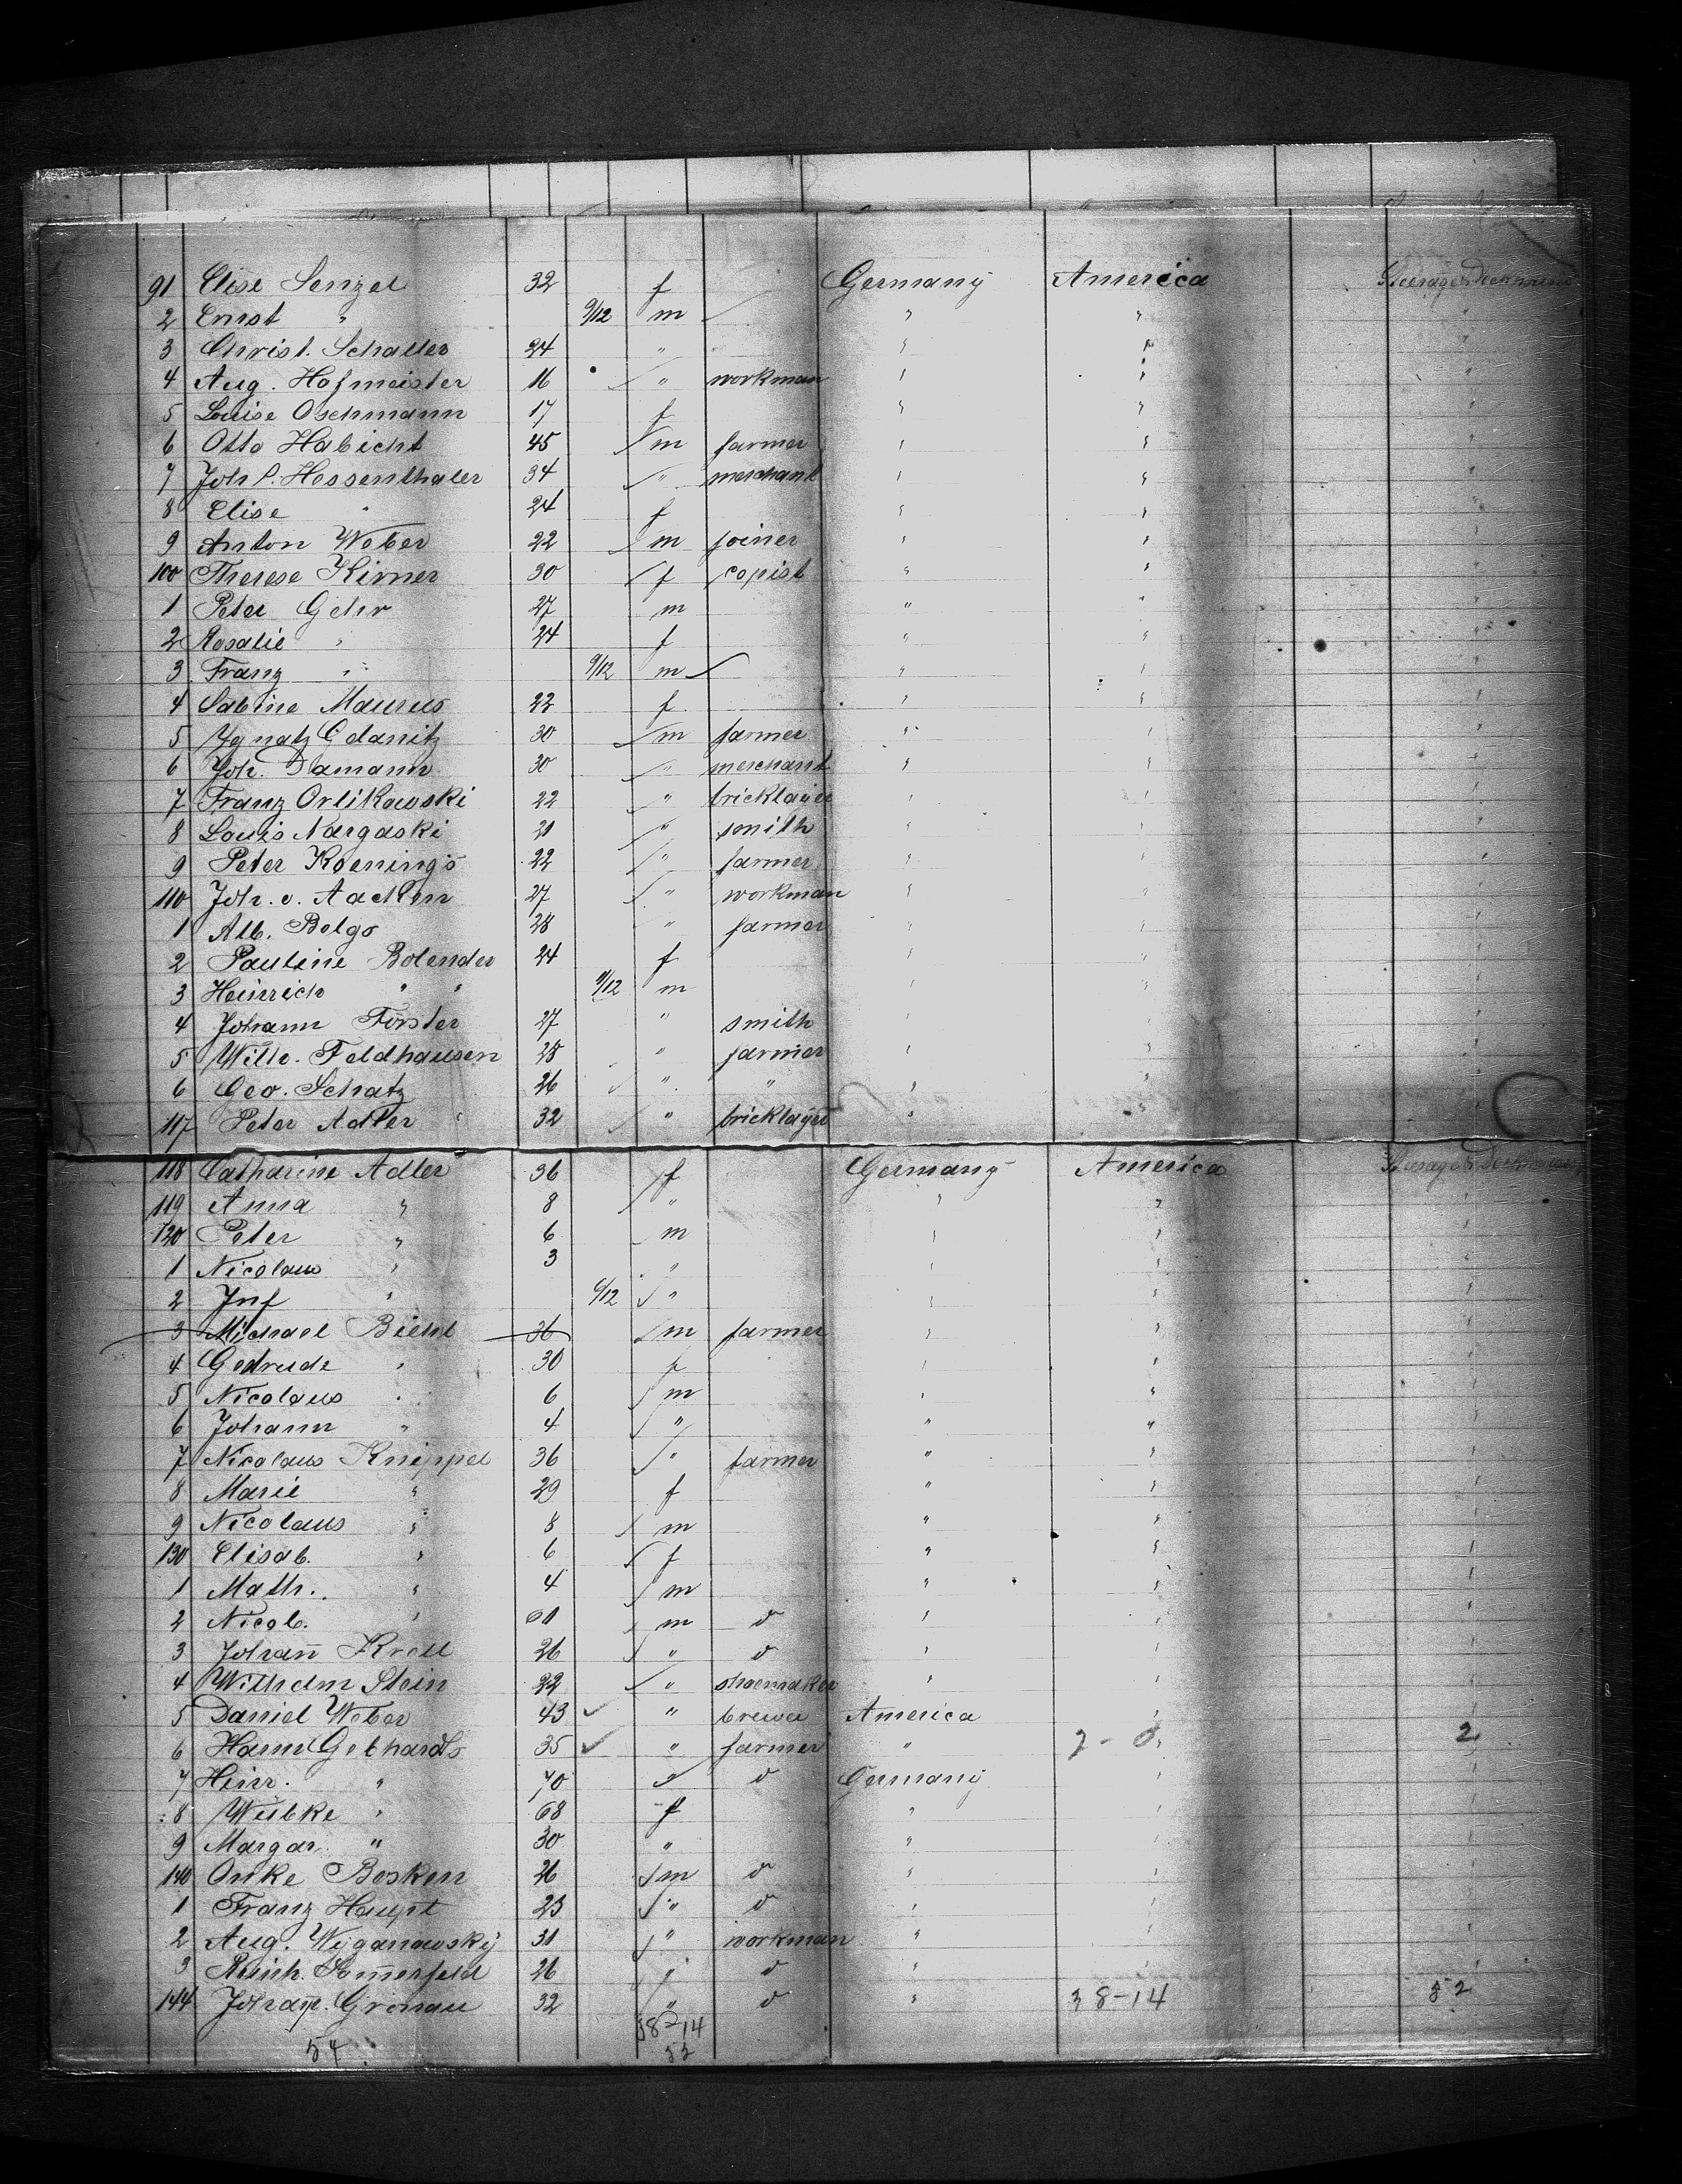 91 Elise Senzel 32 f Germany America Steerage
2 Ernst " 9/12 m " " "
3 Christ. Schaller 24 " " " "
4 Aug. Hofmeister 16 " workman " " "
5 Louise Oschmann 17 f " " "
6 Otto Habicht 45 m farmer " " "
7 Joh P. Hessenthaler 34 " merchant " " "
8 Elise " 24 f " " "
9 Anton Weber 22 m joiner " " "
100 Therese Kirner 30 f copist " " "
1 Peter Gehr 27 m " " "
2 Rosalie " 24 f " " "
3 Franz " 9/12 m " " "
4 Sabine Maurus 22 f " " "
5 Ygnatz Gdanitz 30 m farmer " " "
6 Joh. Damann 30 " merchant " " "
7 Franz Orlikowski 22 " bricklayer " " "
8 Louis Nargaski 21 " smith " " "
9 Peter Koenings 22 " farmer " " "
110 Joh. v. Aachen 27 " workman " " "
1 Alb. Bolgs 28 " farmer " " "
2 Pauline Bolender 24 f " " "
3 Heinrich " " 11/12 m " " "
4 Johann Förster 27 " smith " " "
5 Wilh. Feldhausen 28 " farmer " " "
6 Geo. Schatz 26 " " " " "
117 Peter Adler 32 " bricklayer " " "
118 Catharine Adler 36 f Germany America Steerage
119 Anna " 8 " " " "
120 Peter " 6 m " " "
1 Nicolaus " 3 " " " "
2 Inf " 6/12 " " " "
3 Michael Biehl 36 m farmer " " "
4 Gedrude " 30 f " " "
5 Nicolaus " 6 m " " "
6 Johann " 4 " " " "
7 Nicolaus Knippel 36 " farmer " " "
8 Marie " 29 f " " "
9 Nicolaus " 8 m " " "
130 Elisab. " 6 f " " "
1 Math. " 4 m " " "
2 Nicol. " 61 m d " " "
3 Johan̄ Kroll 26 " d " " "
4 Wilhelm Stein 22 " shoemaker " " "
5 Daniel Weber 43 " brewer America " "
6 Harm Gebhards 35 " farmer " 2 - 0 2
7 Hinr. " 70 " d Germany " "
8 Wübke " 68 f " " "
9 Margar. " 30 " " " "
140 Onke Bosken 26 m d " " "
1 Franz Haupt 23 " d " " "
2 Aug. Wyganowsky 31 " workman " " "
3 Reinh. Som̄erfeld 26 " d " " "
144 Johan̄. Gronau 32 " d " 38-14 52
54 38-14
52